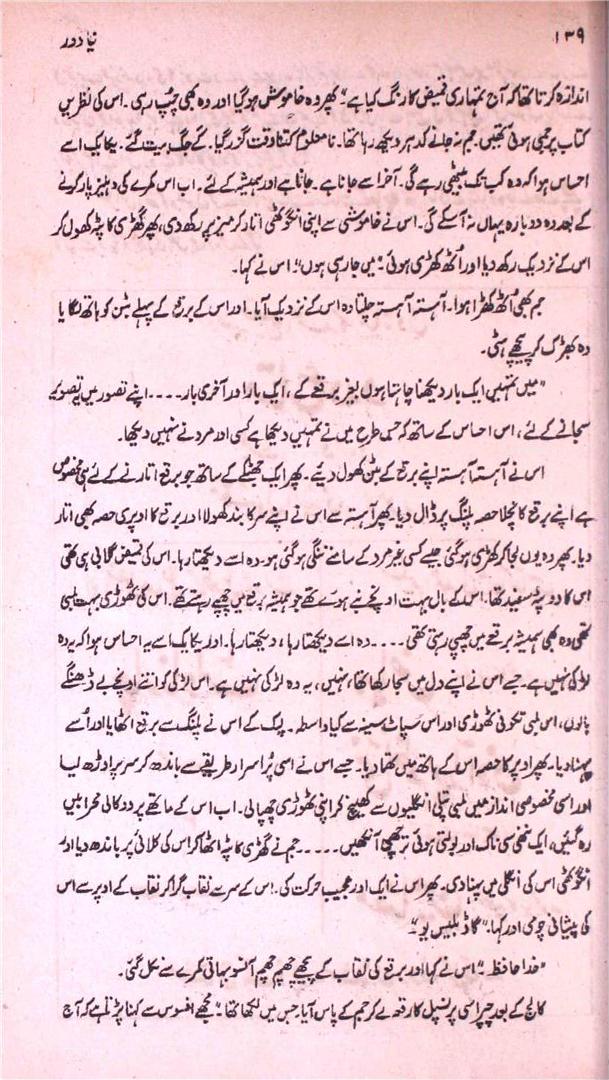 ۱۳۹
نیا دور
اندازہ کرتا تھا کہ آج تمہاری قمیض کا رنگ کیا ہے۔" پھر وہ خاموش ہو گیا اور وہ بھی چپ رہی۔ اس کی نظریں
کتاب پر جمی ہوئی تھیں۔ جم نہ جانے کدہر دیکھ رہا تھا۔ نامعلوم کتنا وقت گزر گیا۔ کے جگ بیت گئے۔ یکایک اسے
احساس ہوا کہ وہ کب تک بیٹھی رہے گی۔ آخر اسے جانا ہے۔ جانا ہے اور ہمیشہ کے لئے۔ اب اس کمرے کی دہلیز پار کرنے
کے بعد وہ دوبارہ یہاں نہ آ سکے گی۔ اس نے خاموشی سے اپنی انگوٹھی اتار کر میز پر رکھ دی، پھر گھڑی کا پٹہ کھول کر
اس کے نزدیک رکھ دیا اور اُٹھ کھڑی ہوئی۔ "میں جا رہی ہوں" اس نے کہا۔
جم بھی اُٹھ کھڑا ہوا۔ آہستہ آہستہ چلتا وہ اس کے نزدیک آیا۔ اور اس کے برقع کے پہلے بٹن کو ہاتھ لگایا
وہ بھڑک کر پیچھے ہٹی۔
"میں تمہیں ایک بار دیکھنا چاہتا ہوں بغیر برقعے کے، ایک بار اور آخری بار۔۔۔۔ اپنے تصور میں یہ تصویر
سجانے کے لئے، اس احساس کے ساتھ کہ جس طرح میں نے تمہیں دیکھا ہے کسی اور مرد نے نہیں دیکھا۔
اس نے آہستہ آہستہ اپنے برقع کے بٹن کھول دیئے۔ پھر ایک جھٹکے کے ساتھ جو برقع اتارنے کے لئے ہی مخصوص
ہے اپنے برقع کا نچلا حصہ پلنگ پر ڈال دیا۔ پھر آہستہ سے اس نے اپنے سر کا بند کھولا اور برقع کا اوپری حصہ بھی اتار
دیا۔ پھر وہ یوں لجا کر کھڑی ہو گئی جیسے کسی غیر مرد کے سامنے ننگی ہو گئی ہو۔ وہ اسے دیکھتا رہا۔ اس کی قمیض گلابی ہی تھی
اس کا دوپٹہ سفید تھا۔ اس کے بال بہت اونچے بنے ہوئے تھے جو ہمیشہ برقعے میں چھپے رہتے تھے۔ اس کی ٹھوڑی بہت لمبی
تھی وہ بھی ہمیشہ برقعے میں چھپی رہتی تھی۔۔۔۔ وہ اسے دیکھتا رہا، دیکھتا رہا۔ اور یکایک اسے یہ احساس ہوا کہ یہ وہ
لڑکی نہیں ہے۔ جسے اس نے اپنے دل میں سجا رکھا تھا، نہیں، یہ وہ لڑکی نہیں ہے۔ اس لڑکی کو اتنے اونچے بے ڈھنگے
بالوں، اس لمبی تکونی ٹھوڑی اور اس سپاٹ سینہ سے کیا واسطہ۔ لپک کے اس نے پلنگ سے برقع اٹھایا اور اُسے
پہنا دیا۔ پھر اوپر کا حصہ اس کے ہاتھ میں تھما دیا۔ جسے اس نے اسی پُر اسرار طریقے سے باندھ کر سر پر اوڑھ لیا
اور اسی مخصوص انداز میں لمبی پتلی انگلیوں سے کھینچ کر اپنی ٹھوڑی چھپا لی۔ اب اس کے ماتھے پر دو کالی محرابیں
رہ گئیں، ایک ننھی سی ناک اور بولتی ہوئی آنکھیں۔۔۔۔۔ جم نے گھڑی کا پٹہ اٹھا کر اس کی کلائی پر باندھ دیا اور
انگوٹھی اس کی انگلی میں پہنا دی۔ پھر اس نے ایک اور عجیب حرکت کی۔ اس کے سر سے نقاب گرا کر نقاب کے اوپر سے اس
کی پیشانی چومی اور کہا۔ "گاڈ بلیس یو۔"
"خدا حافظ۔" اس نے کہا اور برقع کی نقاب کے پیچھے چھم چھم آنسو بہاتی کمرے سے نکل گئی۔
کالج کے بعد چپراسی پرنسپل کا رقعہ لے کر جم کے پاس آیا۔ جس میں لکھا تھا۔ "مجھے افسوس سے کہنا پڑتا ہے کہ آج